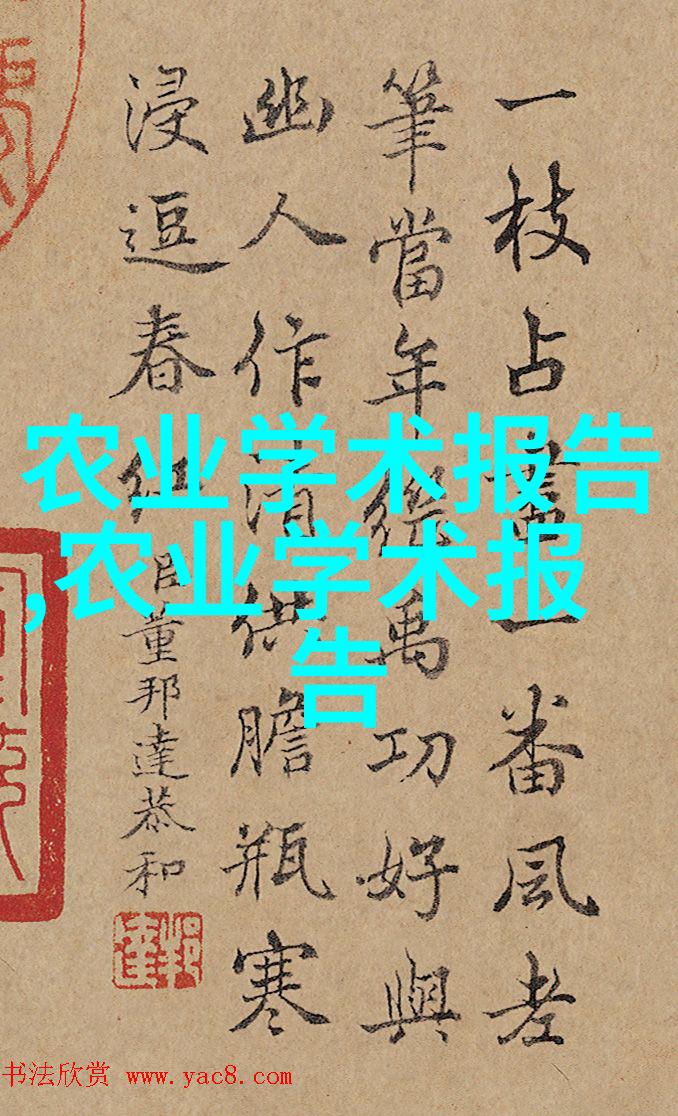 一枝占盡一番風老
筆當年繼禹功好與
幽人作清供膽瓶寒
浸逗春紅 臣董邦達恭和
邦達
农业学术报告
,农业学术报
告
书法欣赏 www.yac8.com